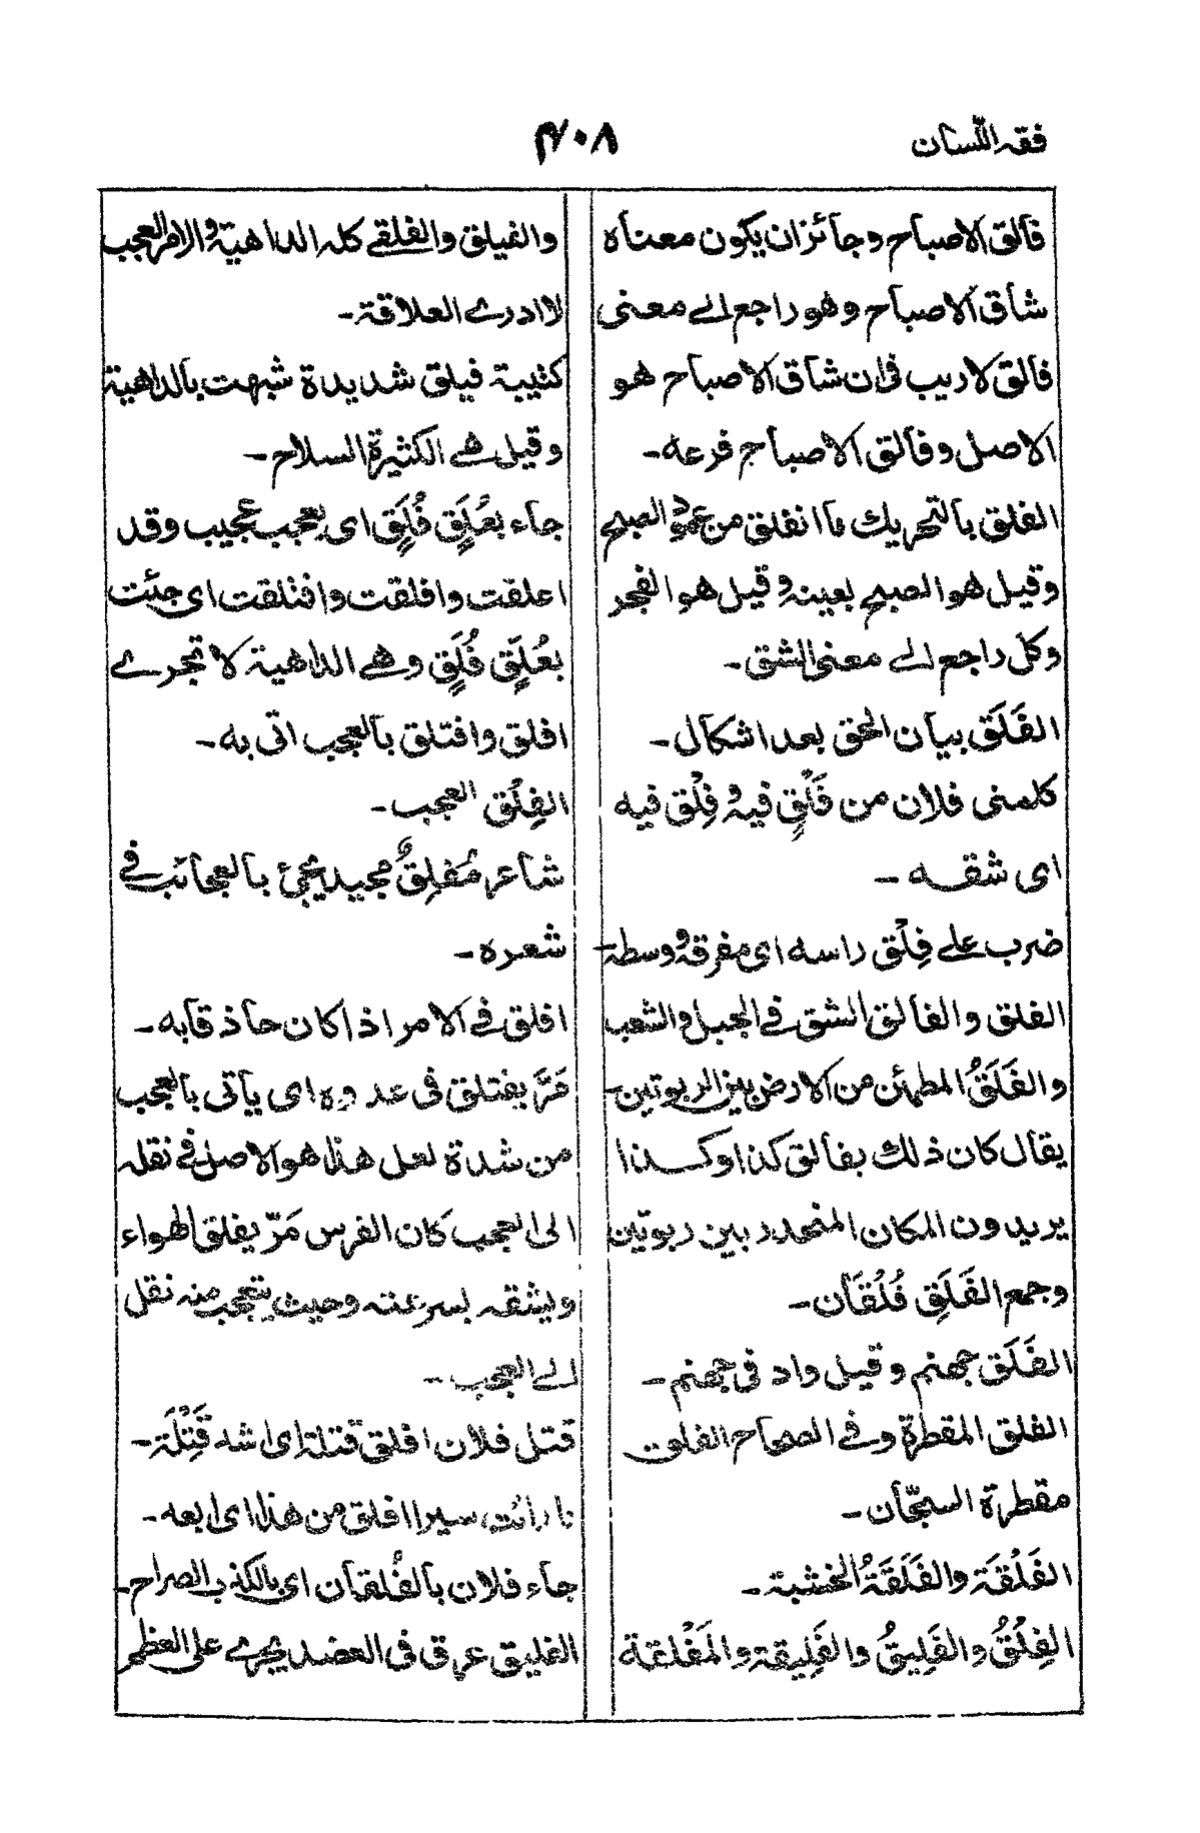 فقه اللسان
۴۰۸
فالق الاصباح وجائز ان يكون معناه
شاق الاصباح وهو راجع الے معنى
فالق لاريب فى ان شاق الاصباح هو
الاصل وفالق الاصباح فرعه-
الفلق بالتحريك ما انفلق من عمود الصبح
وقيل هو الصبح بعينه وقيل هو الفجر
وكل راجع الے معنى الشق-
الفَلَق بيان الحق بعد اشكال-
كلمنى فلان من فَلْقِ فيه وفِلْق فيه
اى شقه-
ضرب علے فِلْق راسه اى مفرقه ووسطه-
الفلق والفالق الشق فے الجبل والشعب
والفَلَقُ المطمئن من الارض بين الربوتين-
يقال كان ذلك بفالق كذا وكذا
يريدون المكان المنحدر بين ربوتين
وجمع الفَلَقِ فُلْقَان-
الفَلَق جهنم وقيل واد فى جهنم-
الفلق المقطرة وفے الصحاح الفلق
مقطرة السجّان-
الفَلْقَة والفَلَقَةُ الخشبة-
الفِلْقُ والفَلِيقُ والفَلِيقة والمَفْلقة
والفيلق والفلقے كله الداهية والامر العجب
لا ادرے العلاقة-
كتيبة فيلق شديدة شبهت بالداهية
وقيل هے الكثيرة السلاح-
جاء بعُلَقٍ فُلَقٍ اى بعجب عجيب وقد
اعلقت وافلقت وافتلقت اى جئت
بعُلَقٍ فُلَقٍ وهے الداهية لا تجرے
افلق وافتلق بالعجب اتى به-
الفِلْق العجب-
شاعر مُفلِقٌ مجيد يجئ بالعجائب فے
شعره-
افلق فے الامر اذا كان حاذقا به-
مَرَّ يفتلق فى عدوه اى ياتى بالعجب
من شدة لعل هذا هو الاصل فے نقله
الى العجب كان الفرس مَرّ يفلق الهواء
ويشقه بسرعته وحيث يتعجب منه نقل
الے العجب-
قتل فلان افلق قتلة اى اشد قَتِلْة-
سيرا افلق من هذا اى ابعد-
جاء فلان بالفُلقان اى بالكذب الصراح-
الفليق عرق فى العضد يجرے على العظم